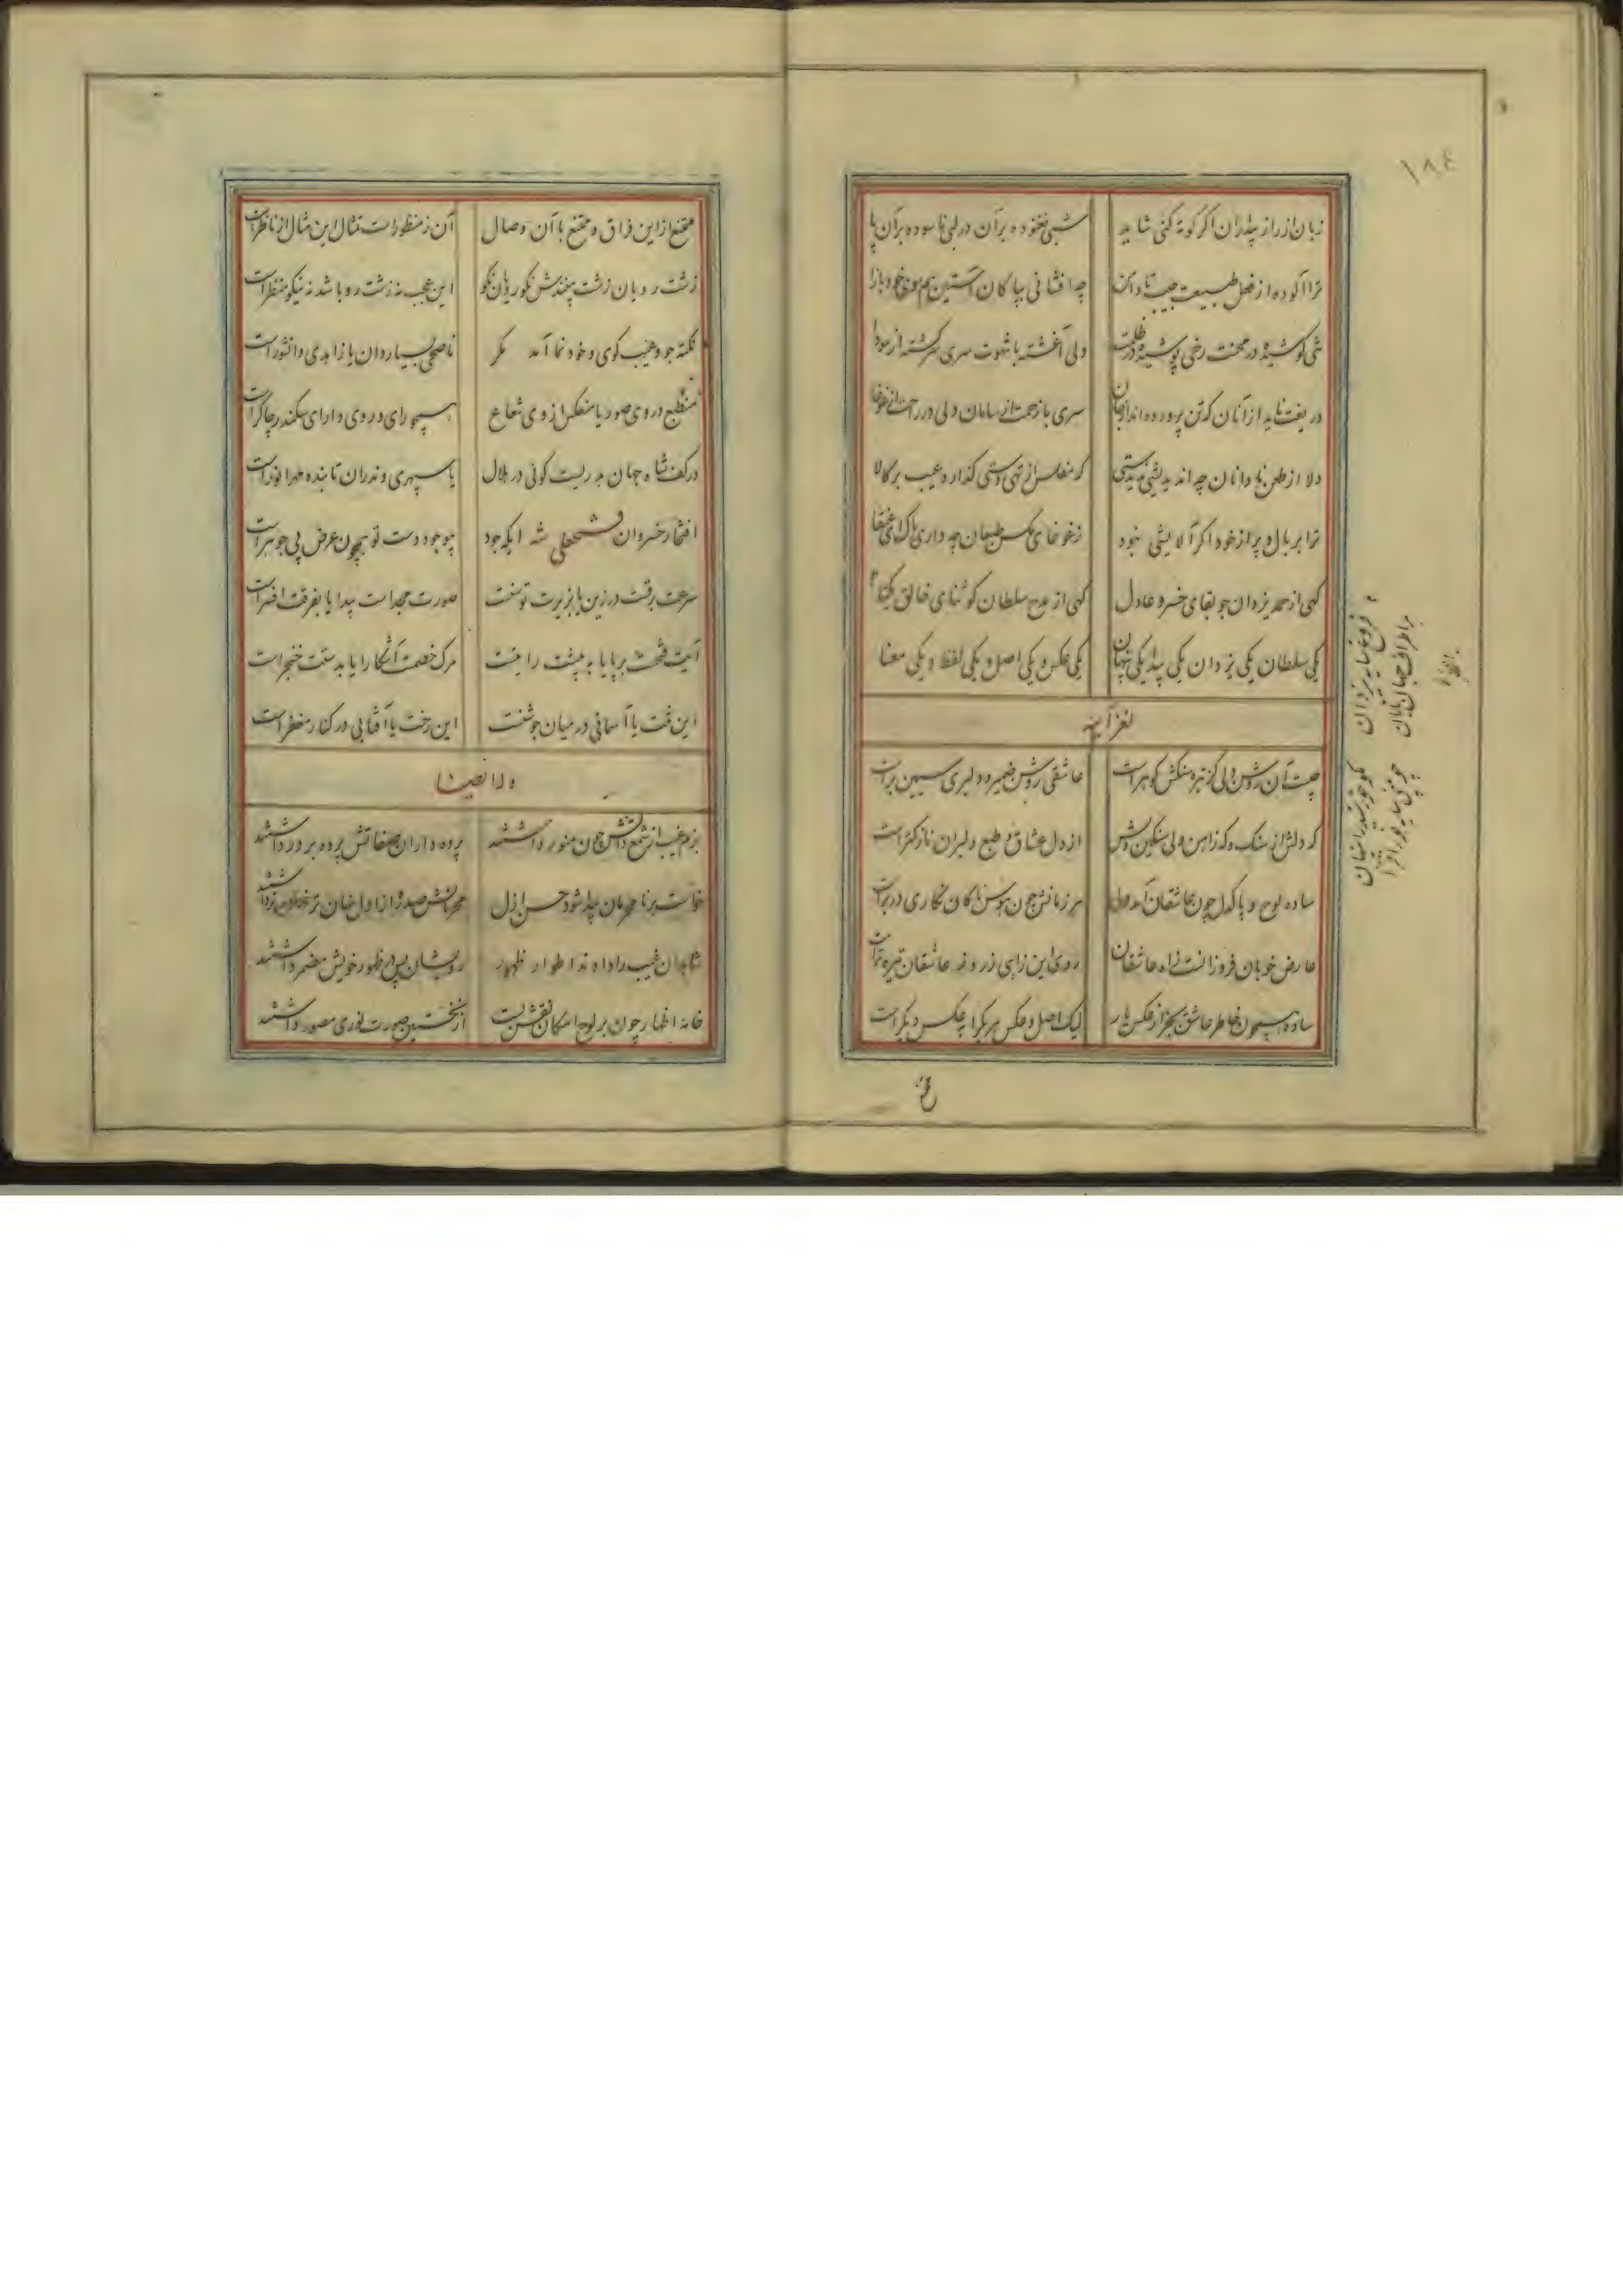 ۱۸۴
زبان از راز بیداران اگر کوته کنی شاید شبی نغنوده بر آن در لبی ناسوده بر آن پا
ترا آلوده از فعل طبیعت جیب تا دامن چه افشانی بپاکان آستین هم سوی خود باز آ
تنی کوشیده در محنت رخی پوشیده در ظلمت دلی آغشته با شهوت سری سرگشته از سودا
دریغت ناید از آنان که تن پرورده‌اند از جان سری با زحمت از سامان دلی در راحت از غوغا
دلا از طعن نادانان چه اندیشی که مفلس از تهی دستی گذارد عیب بر کالا
ترا بر بال و پر از خود اگر آلایشی نبود ز غوغای مگس طبعان چه داری باک ای عنقا
گهی از حمد یزدان جو بقای خسرو عادل گهی از مدح سلطان گو ثنای خالق یکتا
یکی سلطان یکی یزدان یکی پیدا یکی پنهان یکی عکس و یکی اصل و یکی لفظ و یکی معنا
فروغ سایه یزدان
بر اطراف جهان تابان
لغز آینه
چیست آن روشن دلی کز تیره سنگش گوهر است عاشقی روشن ضمیر و دلبری سیمین بر است
که دلش از سنگ و که ز آهن ولی سنگین دلش از دل عشاق و طبع دلبران نازکتر است
ساده لوح و پاکدل چون عاشقان آمد ولی هر زمانش چون هوسناکان نگاری در بر است
عارض خوبان فروزانست ز آه عاشقان روی این ز آهی ز روی عاشقان تیره‌تر است
ساده همچون خاطر عاشق بجز از عکس یار لیک اصل و عکس هر یک را به عکس دیگر است
ممتنع از این فراق و ممتنع با آن وصال آن ز منظور است تمثال این مثال از ناظر است
زشت رویان زشت بینندش نکورویان نکو این عجب نه زشت رو باشد نه نیکو منظر است
نکته جو و عیب گوی و خود نما آمد مگر ناصحی بسیار دان یا زاهدی دانشور است
منطبع در وی صور یا منعکس از وی شعاع همچو رای و روی دارای سکندر چاکر است
در کف شاه جهان بدریست گوئی در هلال یا سپهری وندران تابنده مهر انور است
افتخار خسروان فتحعلی شه ایکه جود بوجود دست تو همچون عرض بی جوهر است
سرعت برقست در زین یا بزیرت توسنت صورت مجد است پیدا یا بفرقت افسر است
آیت فتحت برپا یا به پیشت رایتت مرگ خصمت آشکارا یا بدستت خنجر است
این تنت یا آسمانی در میان جوشنت این رخت یا آفتابی در کنار مغفر است
وله ایضا
بزم غیب از شمع ذاتش چون منور داشتند پرده داران صفاتش پرده بر در داشتند
خواست بر نامحرمان پیدا شود حسن ازل
شاهدان غیب را دادند اطوار ظهور رویشان پس در ظهور خویش مضمر داشتند
خامه اظهار چون بر لوح امکان نقش بست از نخستین صورت نوری مصور داشتند